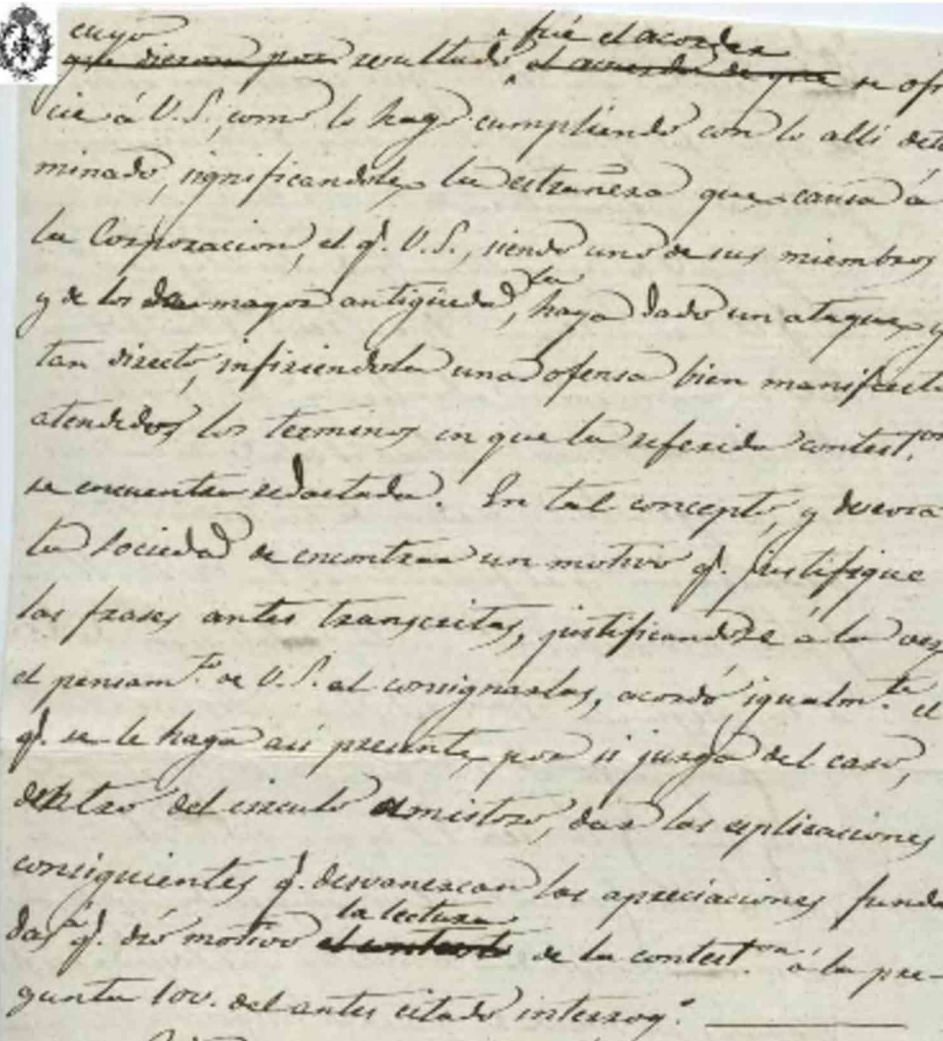 cuyo fué el acordar
que dieron por resultado el acuerdo de que se ofi
cie á V.S., como lo hago cumpliendo con lo allí deter
minado, significandole la estrañesa que causa á
la Corporacion, el q.e V.S., siendo uno de sus miembros
y de los de mayor antigüedad, la haya dado un ataque
tan directo, infiriendola una ofensa bien manifiesta
atendidos los terminos en que la referida contest.on
se encuentra redactada. En tal concepto, y deseosa
la Sociedad de encontrar un motivo q.e justifique
las frases antes transcritas, justificandose á la vez
el pensam.to de V.S. al consignarlas, acordó igualm.te el
q.e se le haga asi presente, por si juzga del caso,
dentro del circulo amistoso, dar las esplicaciones
consiguientes q.e desvanezcan las apreciaciones funda
la lectura
das á q.e dió motivo el contesto de la contest.on á la pre-
gunta 10v. del antes citado interrog.o